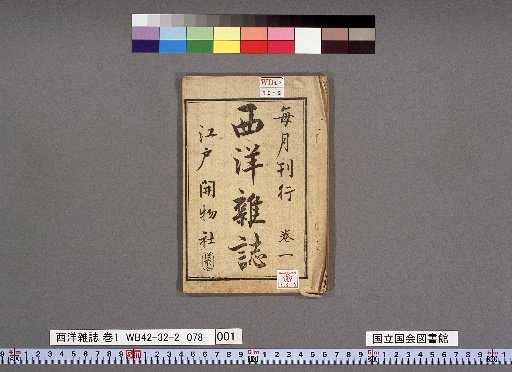 毎月刊行 卷一
西洋雜誌
江戸 開物社
西洋雑誌 巻1 WB42-32-2 078- 001
国立国会図書館